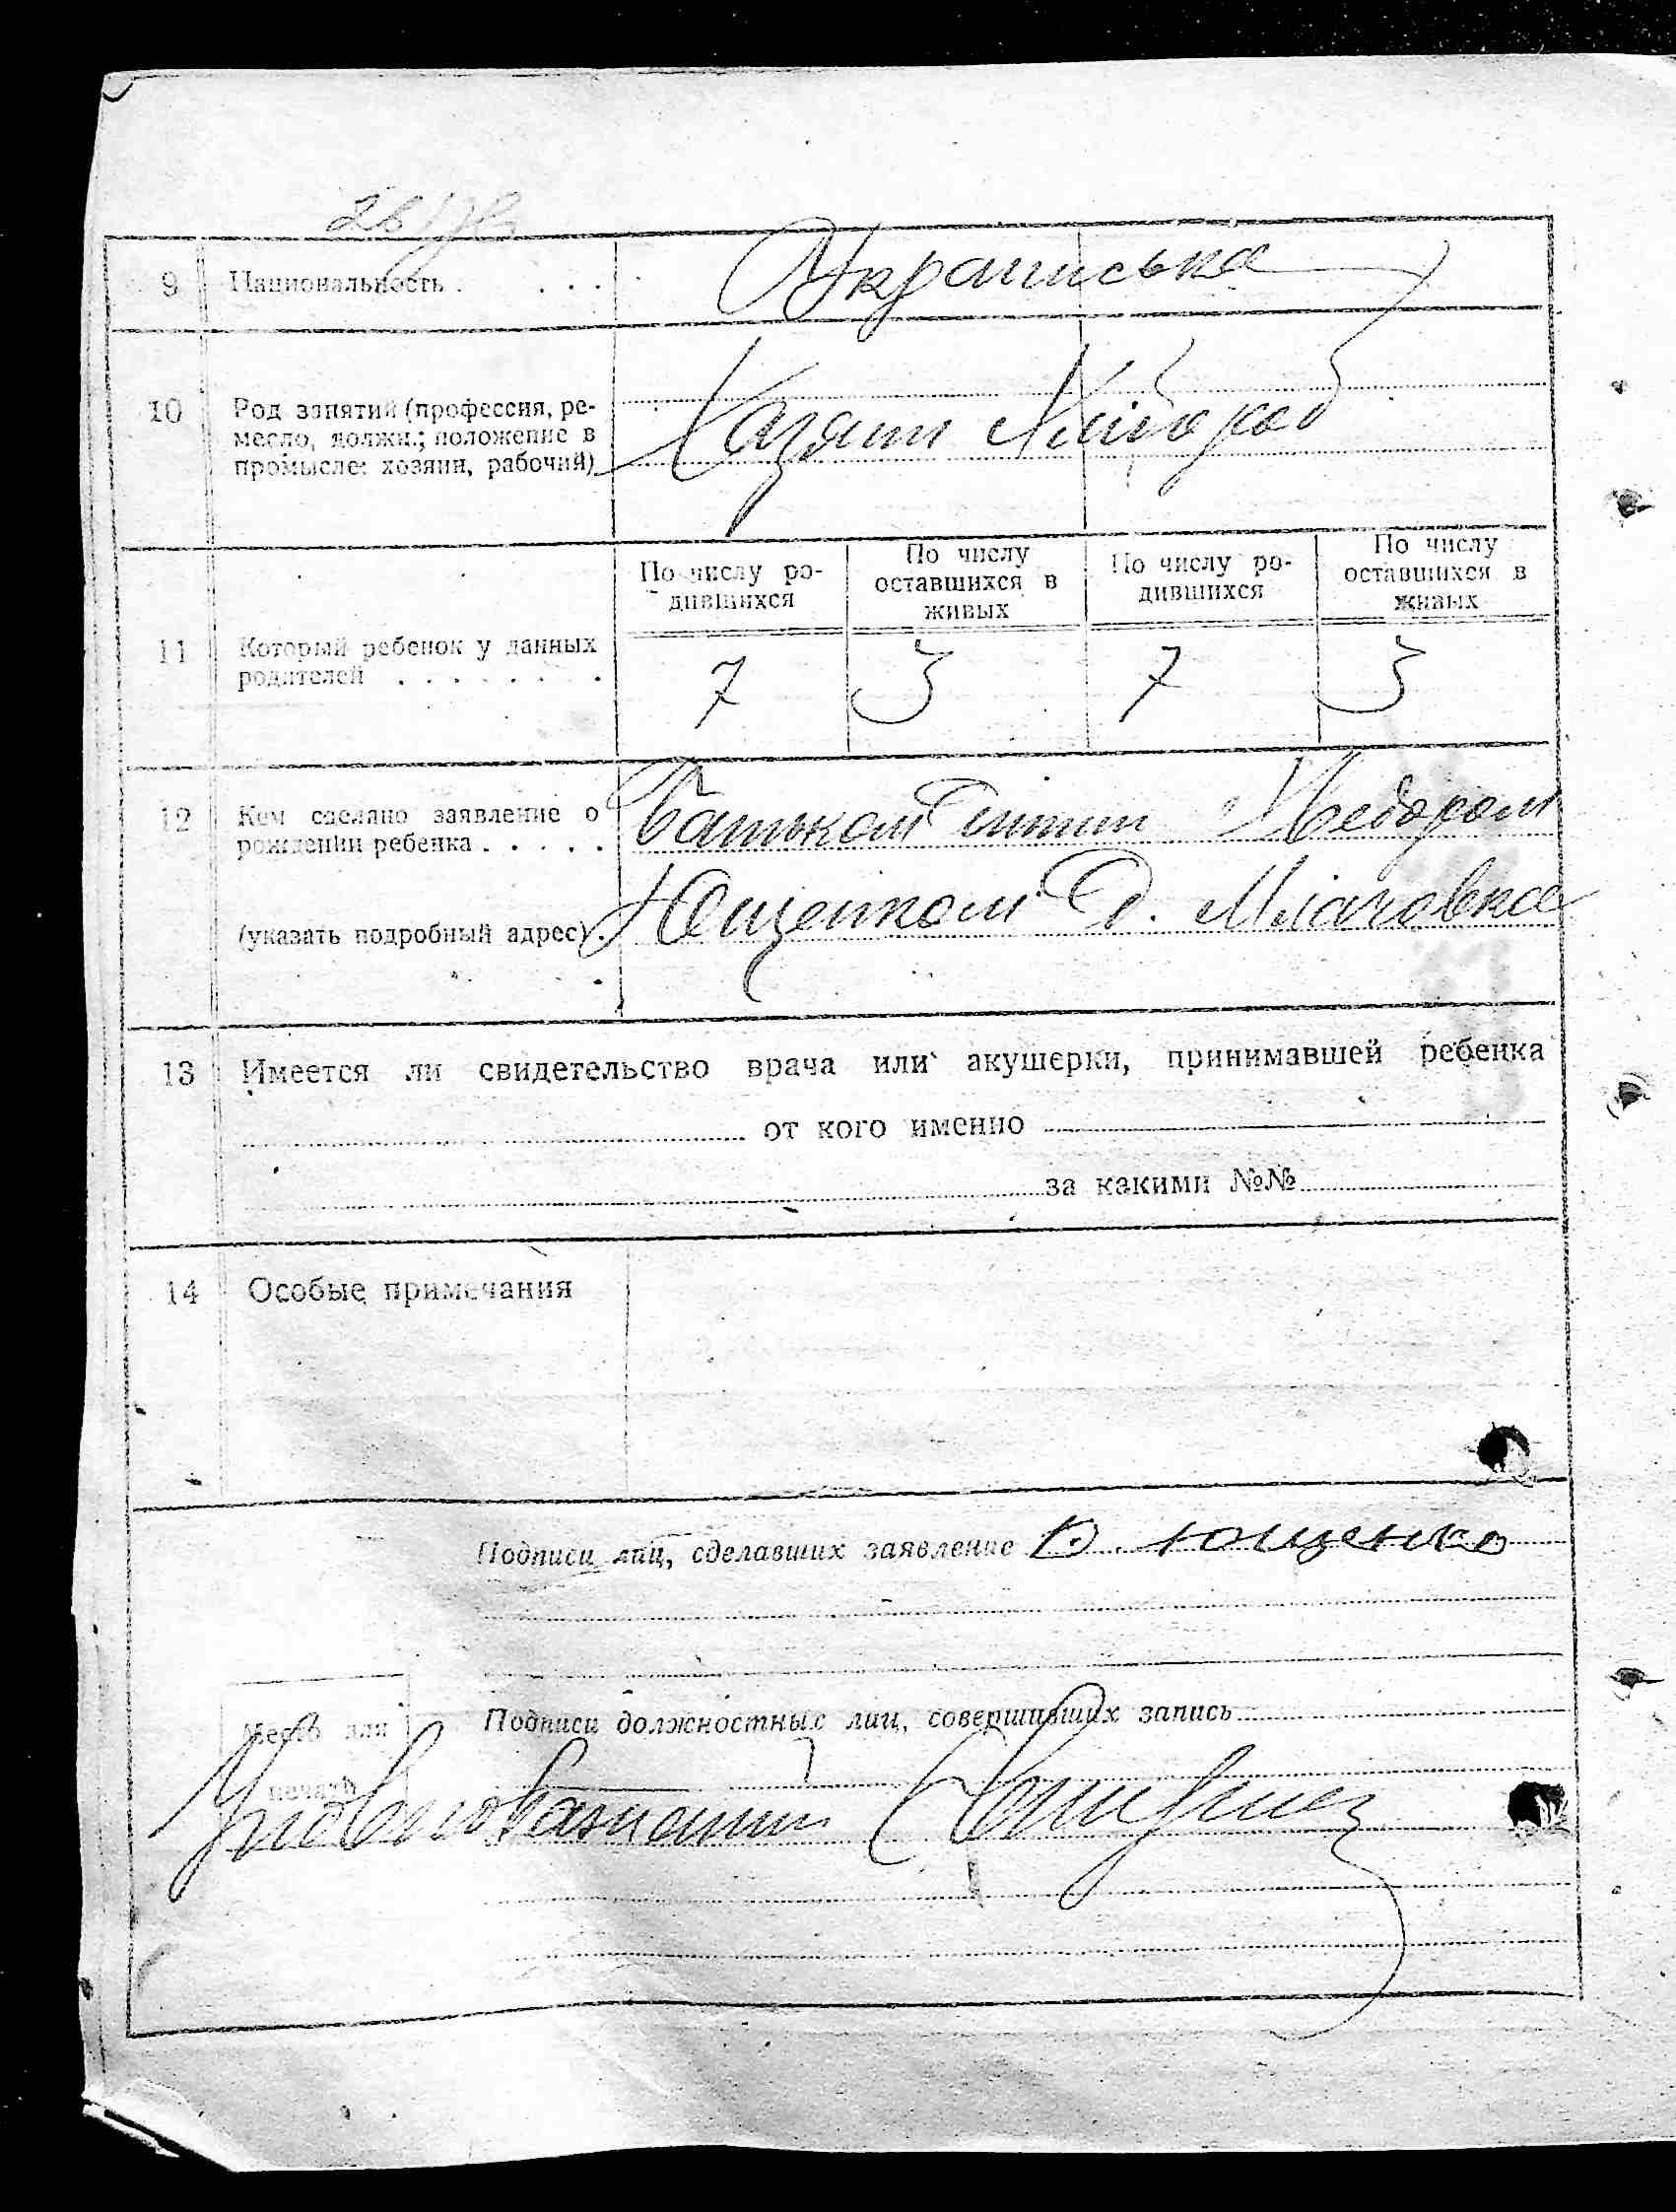 9 Национальность . . . . Украиська
10 Род занятий (профессия, ре-
месло, должн.; положение в
промысле: хозяин, рабочий)
Хазяин Хлібороб
По числу ро-
дившихся
По числу
оставшихся в
живых
По числу ро-
дившихся
По числу
оставшихся в
живых
11 Который ребенок у данных
родителей . . . . . . . .
7 3 7 3
12 Кем сделано заявление о
рождении ребенка . . . . .
Батьком Федором
(указать подробный адрес) .
Ющенком
13 Имеется ли свидетельство врача или акушерки, принимавшей ребенка
от кого именно
за какими №№
14 Особые примечания
Подписи лиц, сделавших заявление Ющенко
Место для
печати
Подписи должностных лиц, совершивших запись